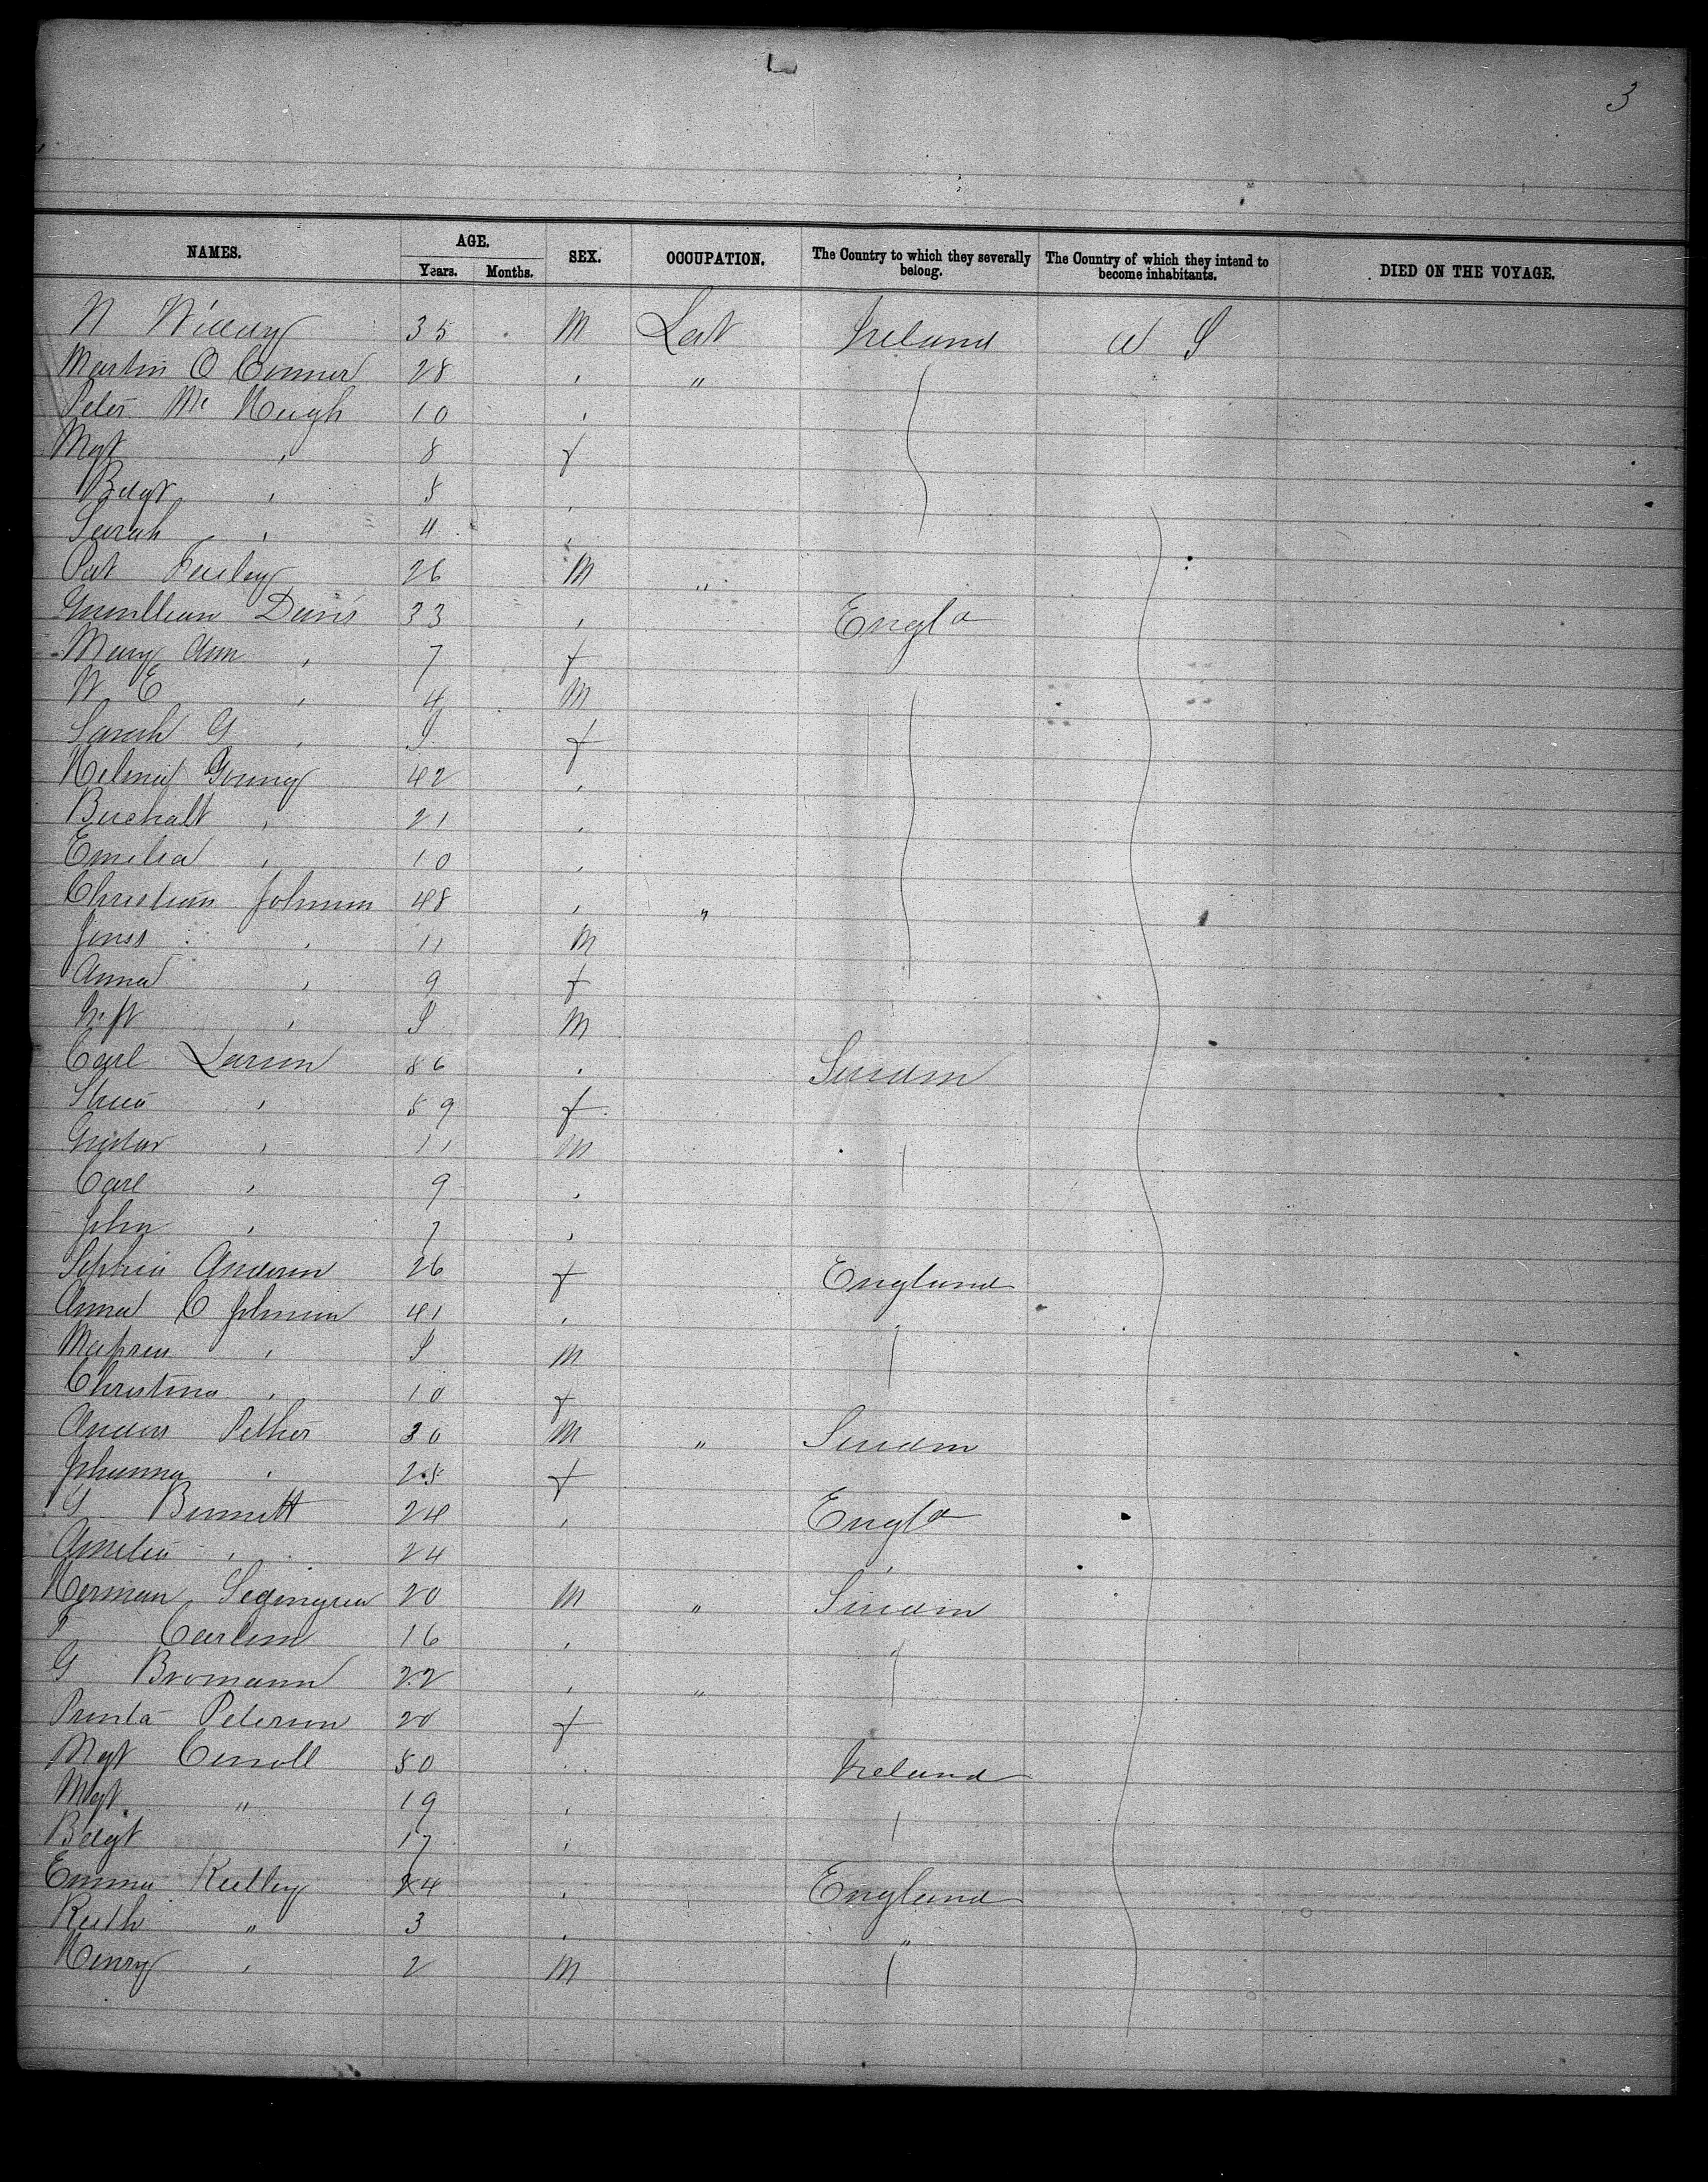 3
NAMES. AGE. SEX. OCCUPATION. The Country to which they severally belong. The Country of which they intend to become inhabitants. DIED ON THE VOYAGE.
Years. Months.
35 M Ireland U S
Martin O Connor 28 , "
Peter Mc Hugh 10 ,
Mgt , 8 f
Bdgt , 5 ,
Sarah , 4 ,
Pat 26 M "
Davis 33 , Engld
Mary Ann , 7 f
W E , 4 M
Sarah G , 9 f
Young 42 ,
, 21 ,
Emilia , 10 ,
Christian Johnson 48 , "
Jones , 11 M
Anna , 9 f
, 9 M
Carl Larson 56 . Sweden
, 59 f
Gustav , 11 M
Carl , 9 ,
John , 7 ,
Sophia Anderson 26 f England
Anna C Johnson 41 ,
, 9 M
Christina , 10 f
Anders 30 M " Sweden
Johanna , 25 f
G Bennett 24 , Engld
Amelia , 24 ,
Herman 20 M " Sweden
Carlson 16 ,
G Bromann 22 , "
Peterson 20 f
Mgt Carroll 50 Ireland
Mgt " 19 ,
Bdgt 17 ,
Emma Kelley 24 , England
Ruth " 3 , "
Henry , 2 M